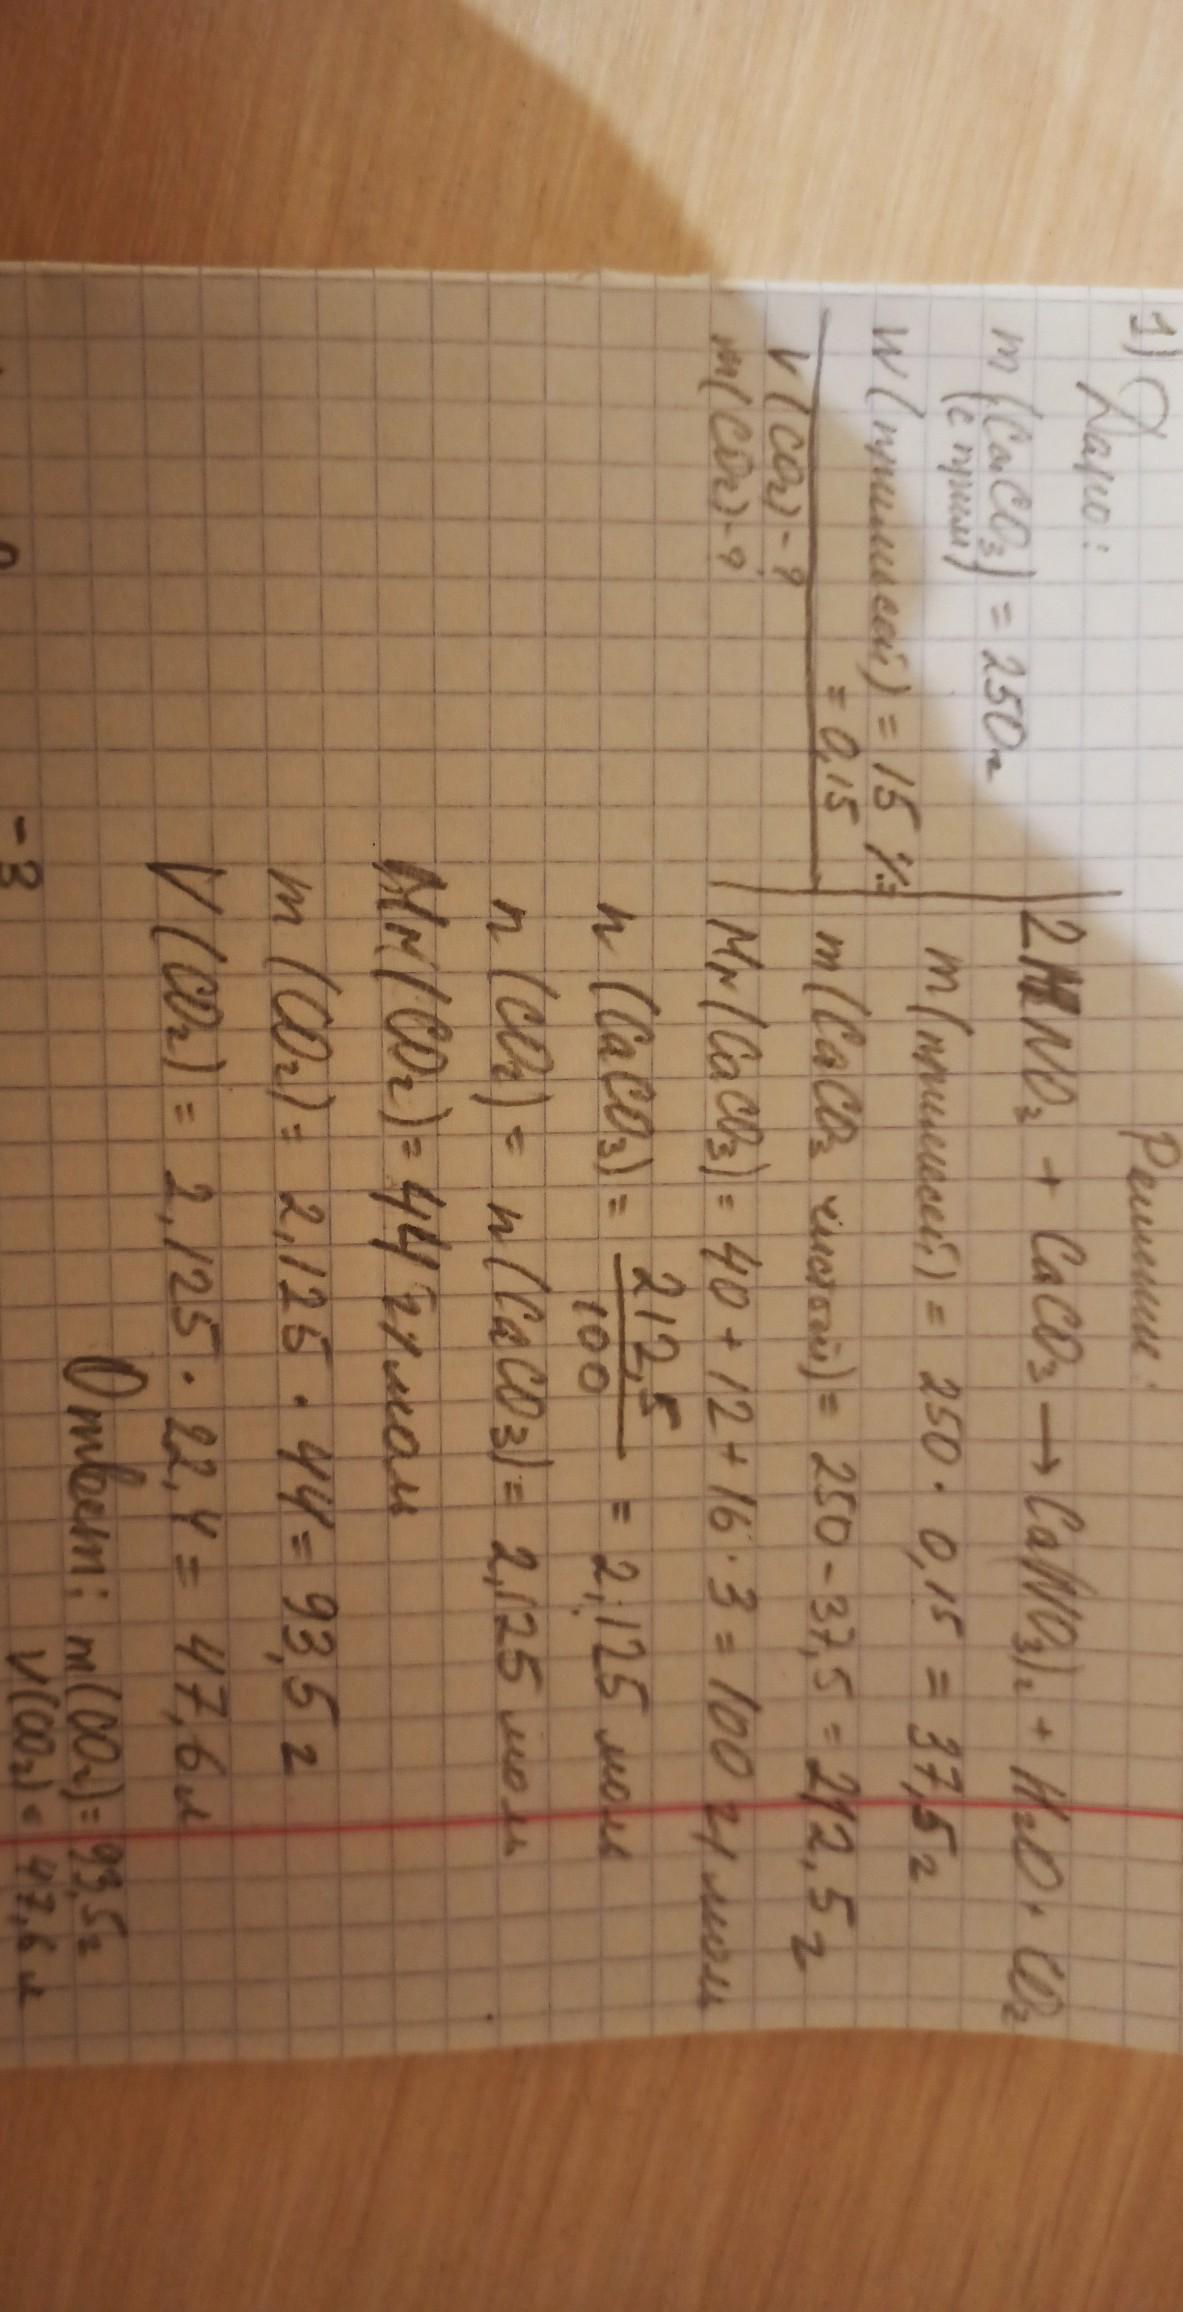 1) Дано:
m (CaCO3) = 250г
(с прим)
W (примесей) = 15 % =
= 0,15
V (CO2) - ?
m (CO2) - ?
Решение:
2HNO3 + CaCO3 → Ca(NO3)2 + H2O + CO2
m (примесей) = 250 · 0,15 = 37,5 г
m (CaCO3 чистой) = 250 - 37,5 = 212,5 г
Mr (CaCO3) = 40 + 12 + 16 · 3 = 100 г/моль
n (CaCO3) = 212,5 / 100 = 2,125 моль
n (CO2) = n (CaCO3) = 2,125 моль
Mr (CO2) = 44 г/моль
m (CO2) = 2,125 · 44 = 93,5 г
V (CO2) = 2,125 · 22,4 = 47,6 л
Ответ: m (CO2) = 93,5 г
V (CO2) = 47,6 л
-3